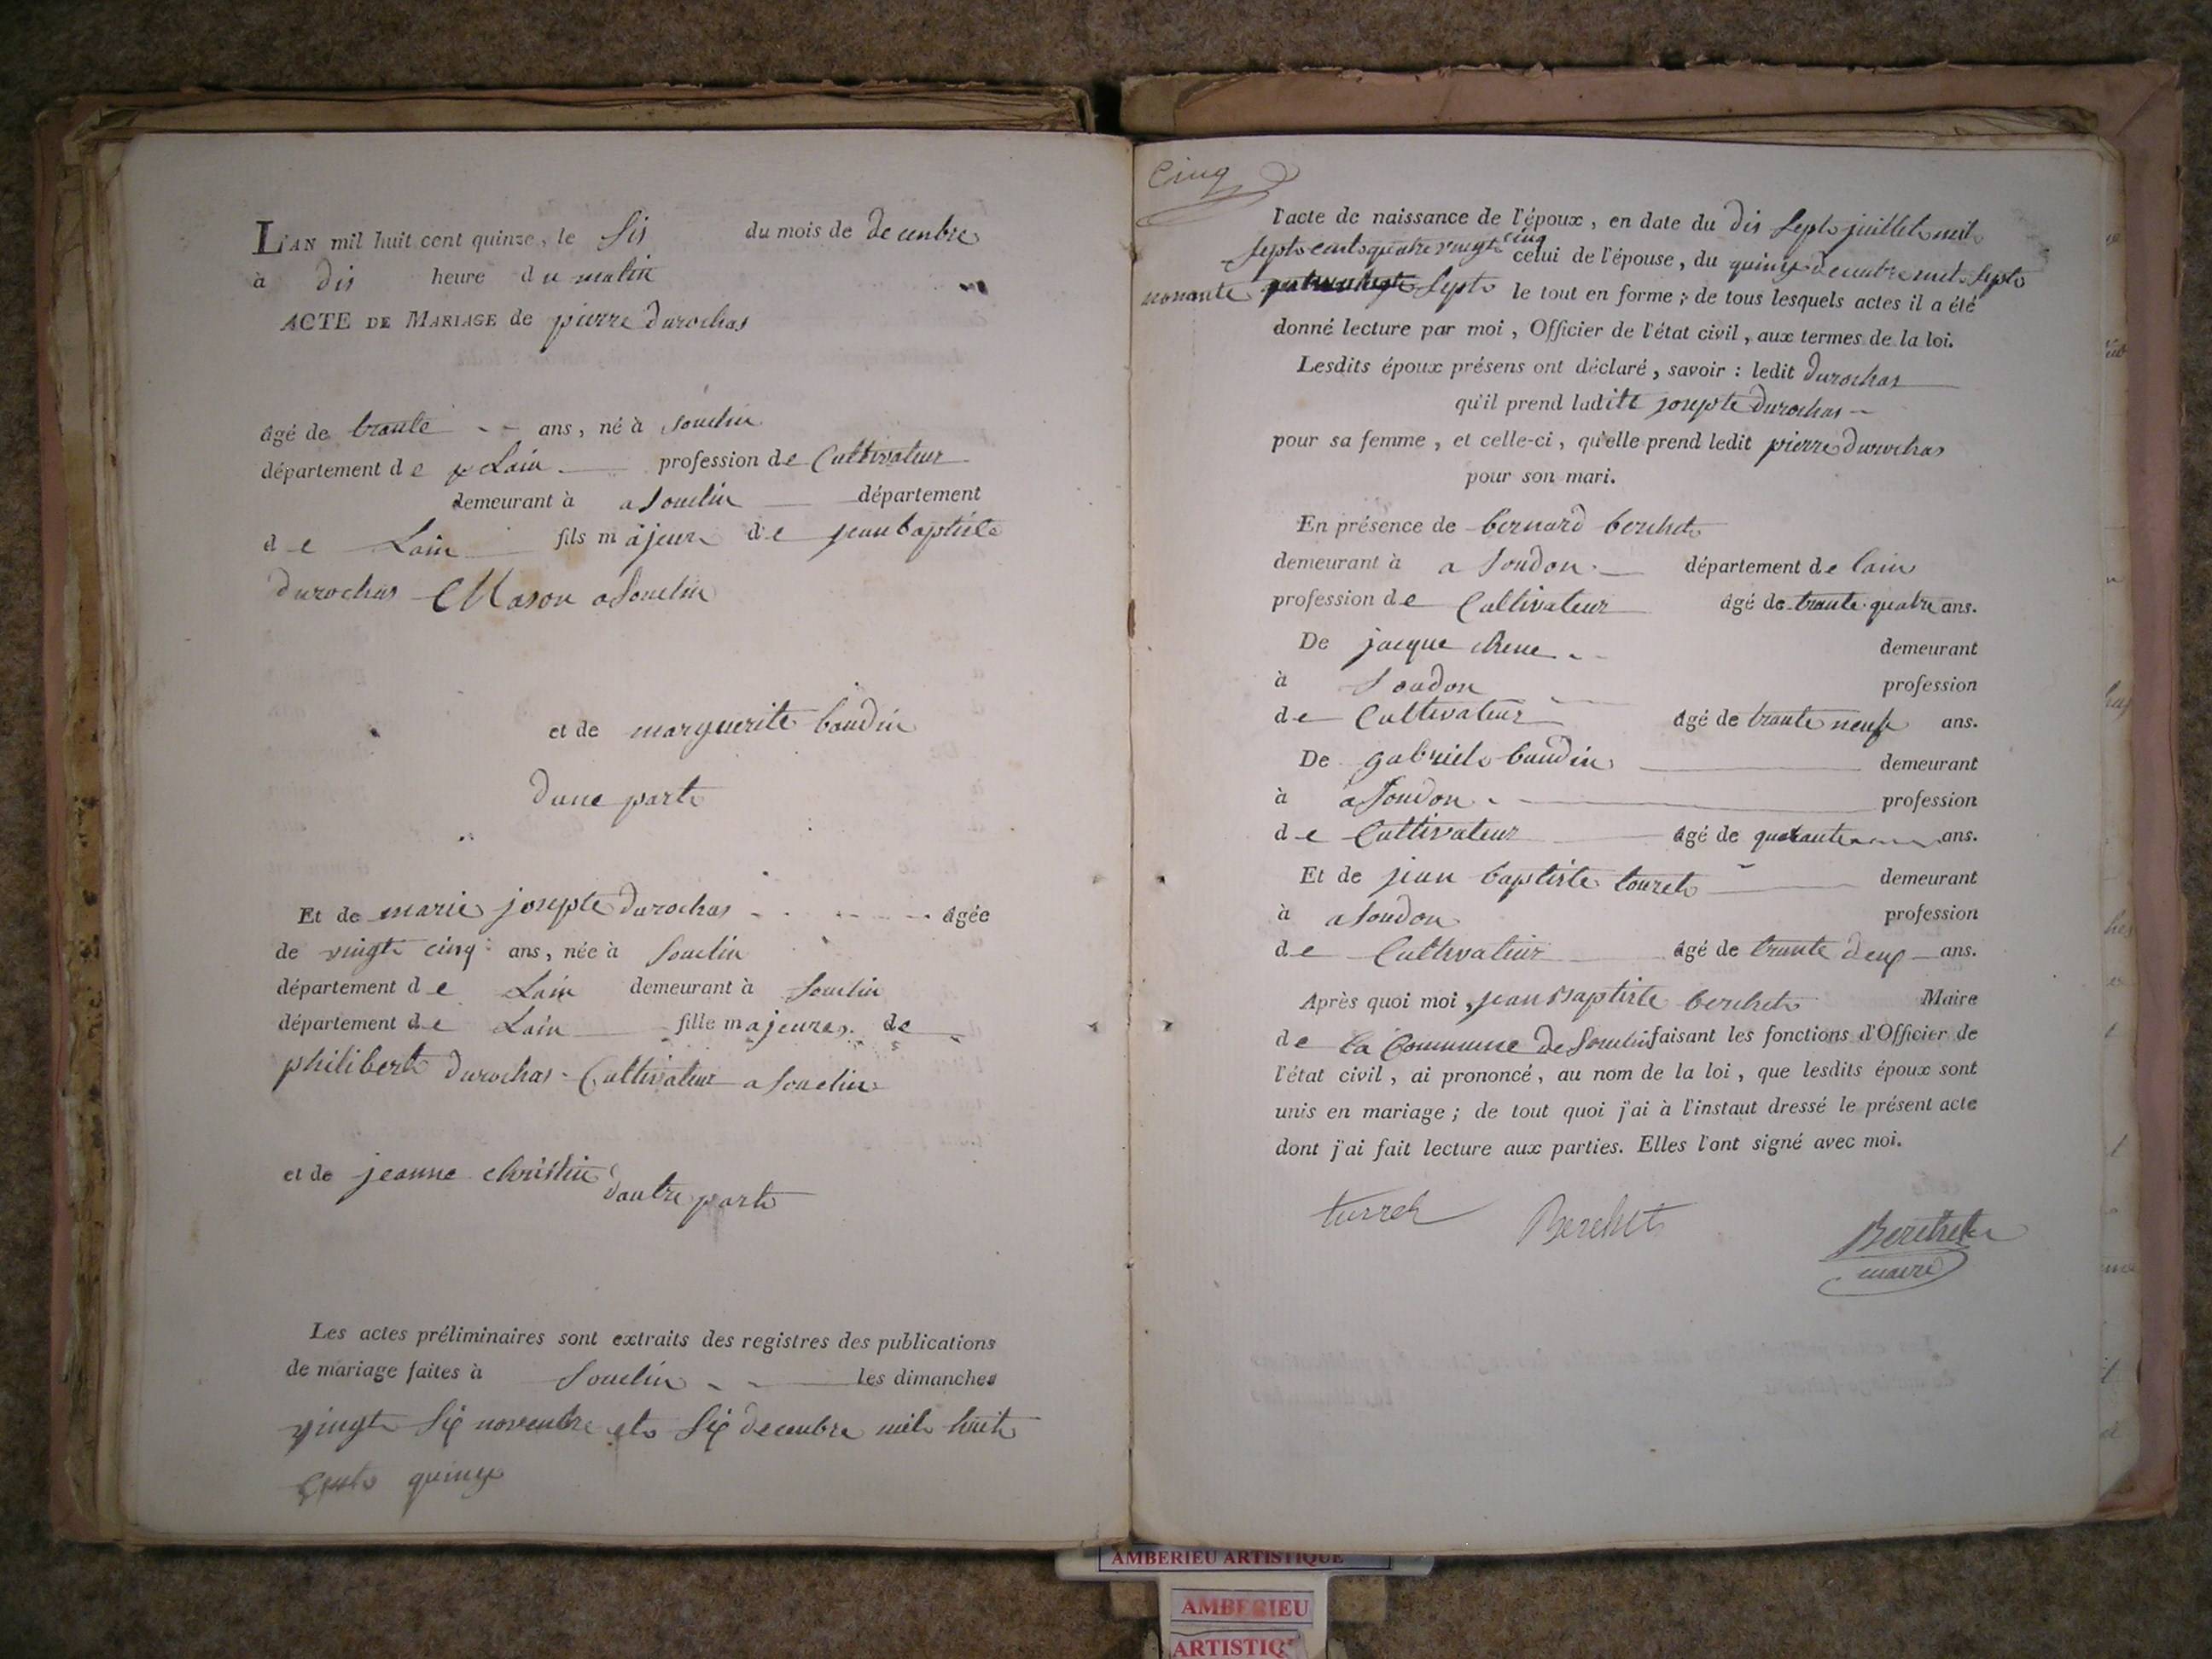 L'AN mil huit cent quinze, le sis du mois de decenbre
à dis heure du matin
ACTE DE MARIAGE de pierre durochas
âgé de trante ans, né à souclin
département de Lain profession de Cultivateur
demeurant à a souclin département
de Lain fils majeur de jean baptiste
durochas Mason a souclin
et de marguerite baudin
dune part
Et de marie josepte durochas âgée
de vingt cinq ans, née à souclin
département de Lain demeurant à souclin
département de Lain fille majeure de
philibert durochas Cultivateur a souclin
et de jeanne christin dautre part
Les actes préliminaires sont extraits des registres des publications
de mariage faites à souclin les dimanches
vingt six novenbre et six decenbre mil huit
cent quinze
Cinq
l'acte de naissance de l'époux, en date du dis sept juillet mil
sept cent quatre vingt cinq celui de l'épouse, du quinze decenbre mil sept
nonante sept le tout en forme; de tous lesquels actes il a été
donné lecture par moi, Officier de l'état civil, aux termes de la loi.
Lesdits époux présens ont déclaré, savoir : ledit durochas
qu'il prend ladite josepte durochas
pour sa femme, et celle-ci, qu'elle prend ledit pierre durochas
pour son mari.
En présence de bernard berchet
demeurant à a soudon département de lain
profession de Cultivateur âgé de trante quatre ans.
De jacque chene demeurant
à soudon profession
de Cultivateur âgé de trante neuf ans.
De gabriel baudin demeurant
à a soudon profession
de Cultivateur âgé de quarante ans.
Et de jean baptiste touret demeurant
à a soudon profession
de Cultivateur âgé de trante deux ans.
Après quoi moi, jean Baptiste berchet Maire
de la Commune de souclin faisant les fonctions d'Officier de
l'état civil, ai prononcé, au nom de la loi, que lesdits époux sont
unis en mariage; de tout quoi j'ai à l'instant dressé le présent acte
dont j'ai fait lecture aux parties. Elles l'ont signé avec moi.
turret Berchet Berchet
maire
AMBERIEU ARTISTIQUE
AMBERIEU
ARTISTIQ